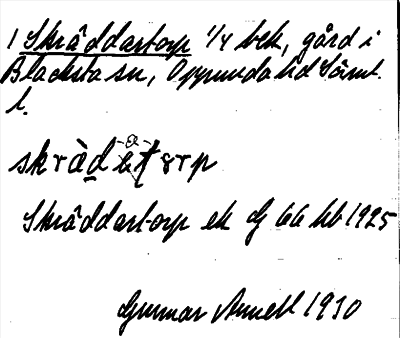 1 Skräddartorp 1/4 bek, gård i
Blacksta sn, Oppunda hd Sörml.
l.
skràdatorp
Skräddartorp ek df 66 hb 1925
Gunnar Arnell 1930